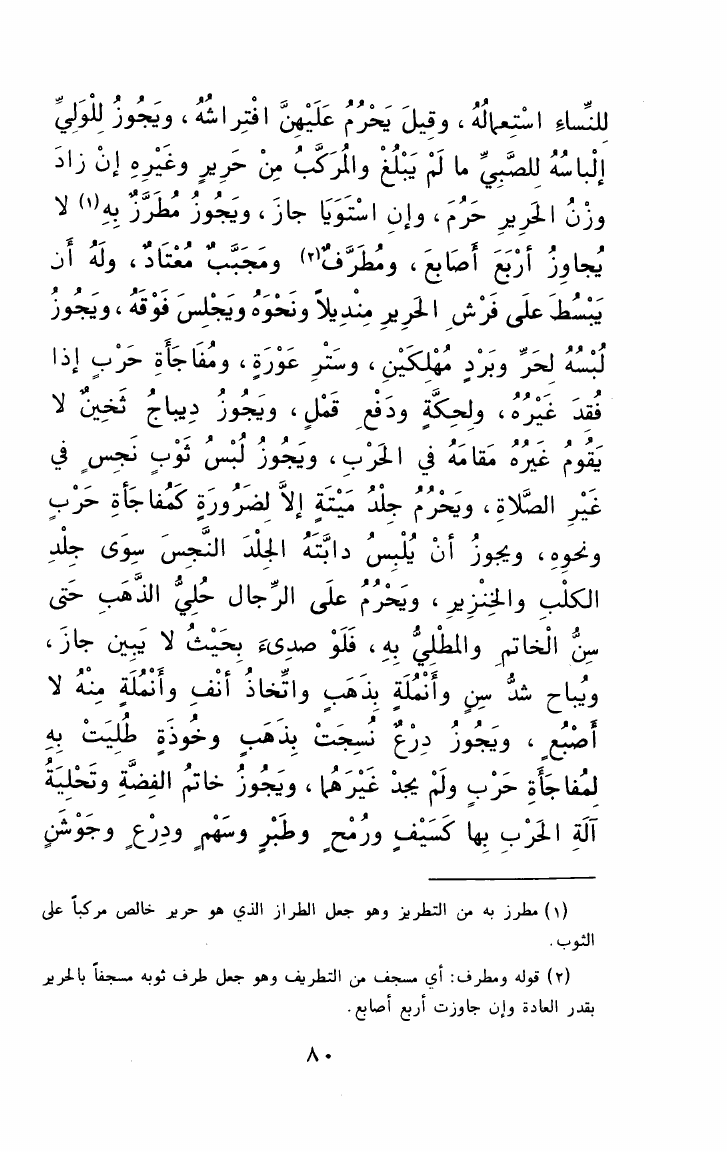 للنِّساءِ اسْتِعمالُهُ ، وقيلَ يَحْرُمُ عَلَيْهِنَّ افْتِراشُهُ ، ويَجُوزُ لِلْوَلِيِّ
إلْباسُهُ لِلصَّبِيِّ ما لَمْ يَبْلُغْ والمُرَكَّبُ مِنْ حَرِيرٍ وغَيْرِهِ إنْ زادَ
وزْنُ الحَرِيرِ حَرُمَ ، وإن اسْتَوَيَا جازَ ، ويَجُوزُ مُطَرَّزٌ بِهِ(١) لا
يُجاوِزُ أَرْبَعَ أَصَابِعَ ، ومُطَرَّفٌ(٢) ومَجَبَّبٌ مُعْتَادٌ ، ولَهُ أن
يَبْسُطَ على فَرْشِ الحَرِيرِ مِنْدِيلاً ونَحْوَهُ ويَجْلِسَ فَوْقَهُ ، ويَجُوزُ
لُبْسُهُ لِحَرٍّ وبَرْدٍ مُهْلِكَيْنِ ، وسَتْرِ عَوْرَةٍ ، ومُفَاجَأَةِ حَرْبٍ إذا
فُقِدَ غَيْرُهُ ، ولِحِكَّةٍ ودَفْعِ قَمْلٍ ، ويَجُوزُ دِيباجٌ ثَخِينٌ لا
يَقُومُ غَيْرُهُ مَقامَهُ في الحَرْبِ ، ويَجُوزُ لُبْسُ ثَوْبٍ نَجِسٍ في
غَيْرِ الصَّلاةِ ، ويَحْرُمُ جِلْدُ مَيْتَةٍ إلاَّ لِضَرُورَةٍ كَمُفاجَأةِ حَرْبٍ
ونحوِهِ ، ويجوزُ أنْ يُلْبِسَ دابَّتَهُ الجِلْدَ النَّجِسَ سِوَى جِلْدِ
الكَلْبِ والخِنْزِيرِ ، ويَحْرُمُ على الرِّجال حُلِيُّ الذَّهَبِ حَتى
سِنُّ الْخاتمِ والمطْلِيُّ بِهِ ، فَلَوْ صدِىءَ بِحَيْثُ لا يَبِين جازَ ،
ويُباح شدُّ سِنٍ وأَنْمُلَةٍ بِذَهَبٍ واتِّخاذُ أنْفٍ وأَنْمُلَةٍ مِنْهُ لا
أصْبُعٍ ، ويَجُوزُ دِرْعٌ نُسِجَتْ بِذَهَبٍ وخُوذَةٍ طُلِيَتْ بِهِ
لمُفاجَأَةِ حَرْبٍ ولَمْ يجِدْ غَيْرَهُما ، ويَجُوزُ خاتمُ الفِضَّةِ وتَحْلِيَةُ
آلَةِ الحَرْبِ بِها كَسَيْفٍ ورُمْحٍ وطَبْرٍ وسَهْمٍ ودِرْعٍ وجَوْشَنٍ
(١) مطرز به من التطريز وهو جعل الطراز الذي هو حرير خالص مركباً على
الثوب .
(٢) قوله ومطرف : أي مسجف من التطريف وهو جعل طرف ثوبه مسجفاً بالحرير
بقدر العادة وإن جاوزت أربع أصابع .
٨٠